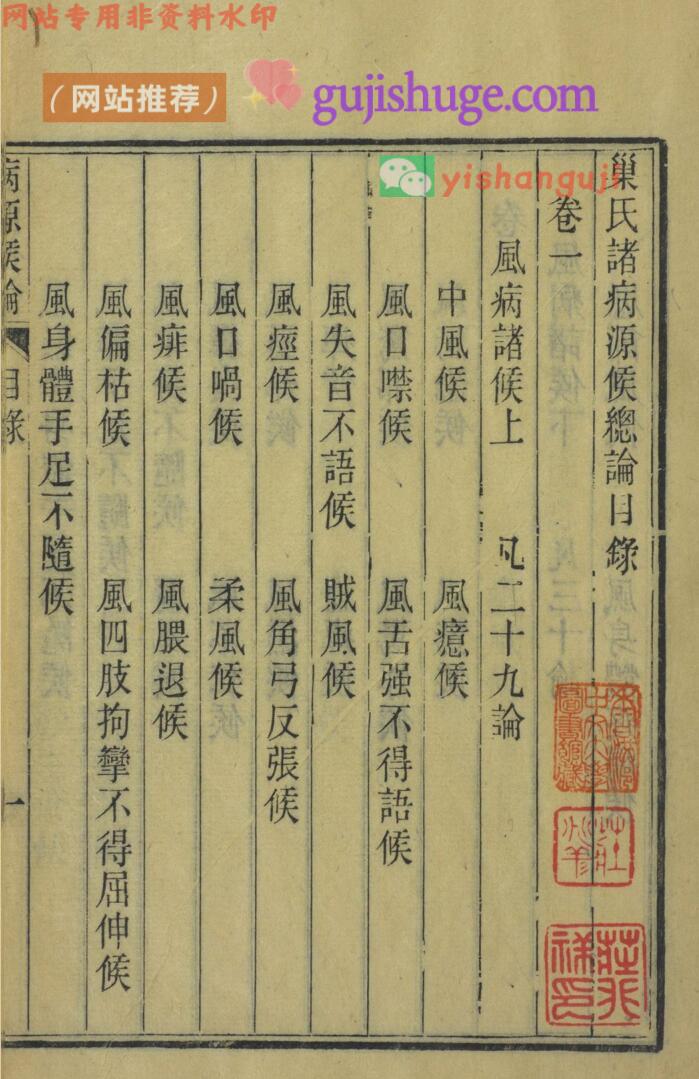 网站专用非资料水印
（网站推荐）
gujishuge.com
yishanguji
巢氏諸病源候總論目錄
卷一
風病諸候上 凡二十九論
中風候 風癔候
風口噤候 風舌强不得語候
風失音不語候 賊風候
風痙候 風角弓反張候
風口喎候 柔風候
風痱候 風腲退候
風偏枯候 風四肢拘攣不得屈伸候
風身體手足不隨候
病源候論 目錄 一